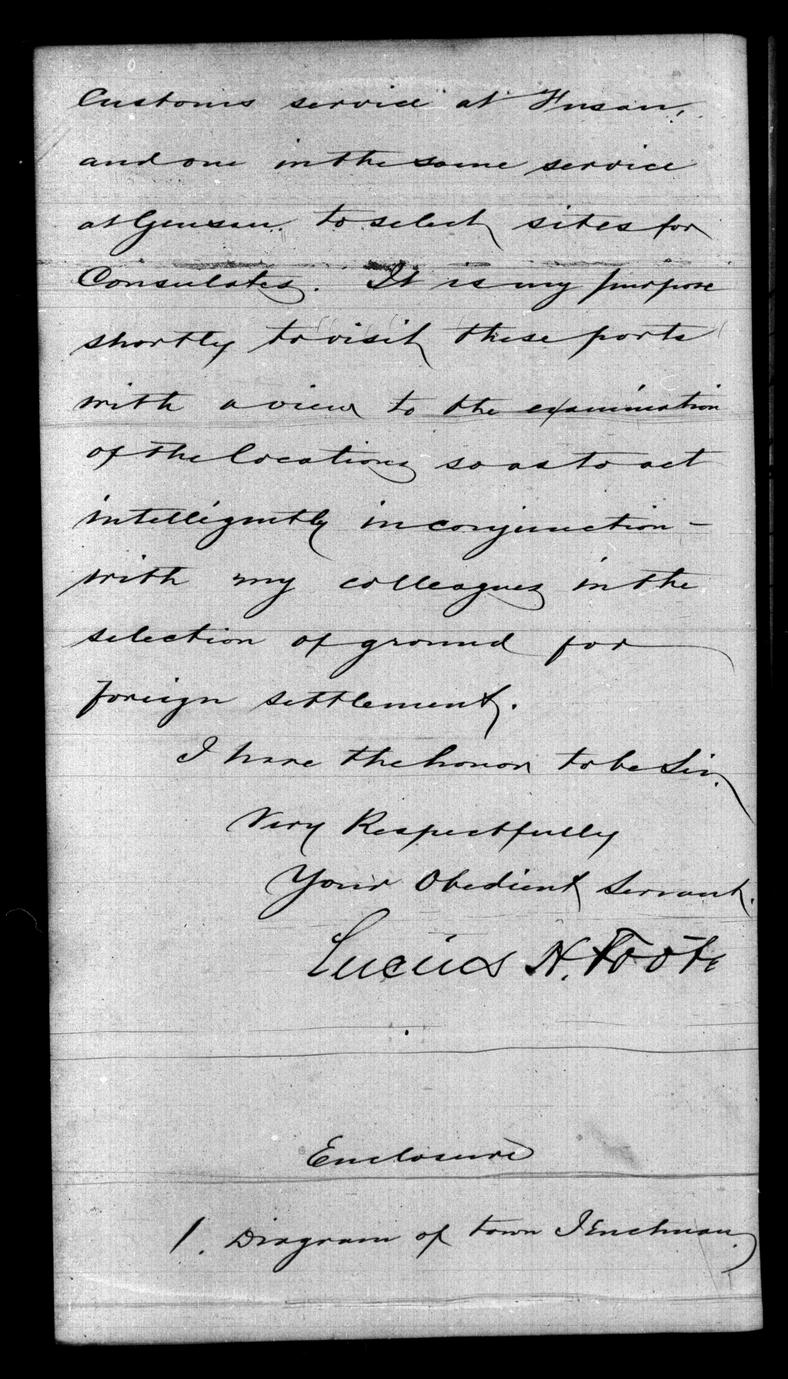 Customs service at Fusan,
and one in the same service
at Gensan. to select sites for
Consulates. It is my purpose
shortly to visit these ports
with a view to the examination
of the locations so as to act
intelligently in conjunction –
with my colleagues in the
selection of ground for
foreign settlement.
I have the honor to be Sir,
Very Respectfully
Your Obedient Servant.
Lucius H. Foote
Enclosure
1. Diagram of town